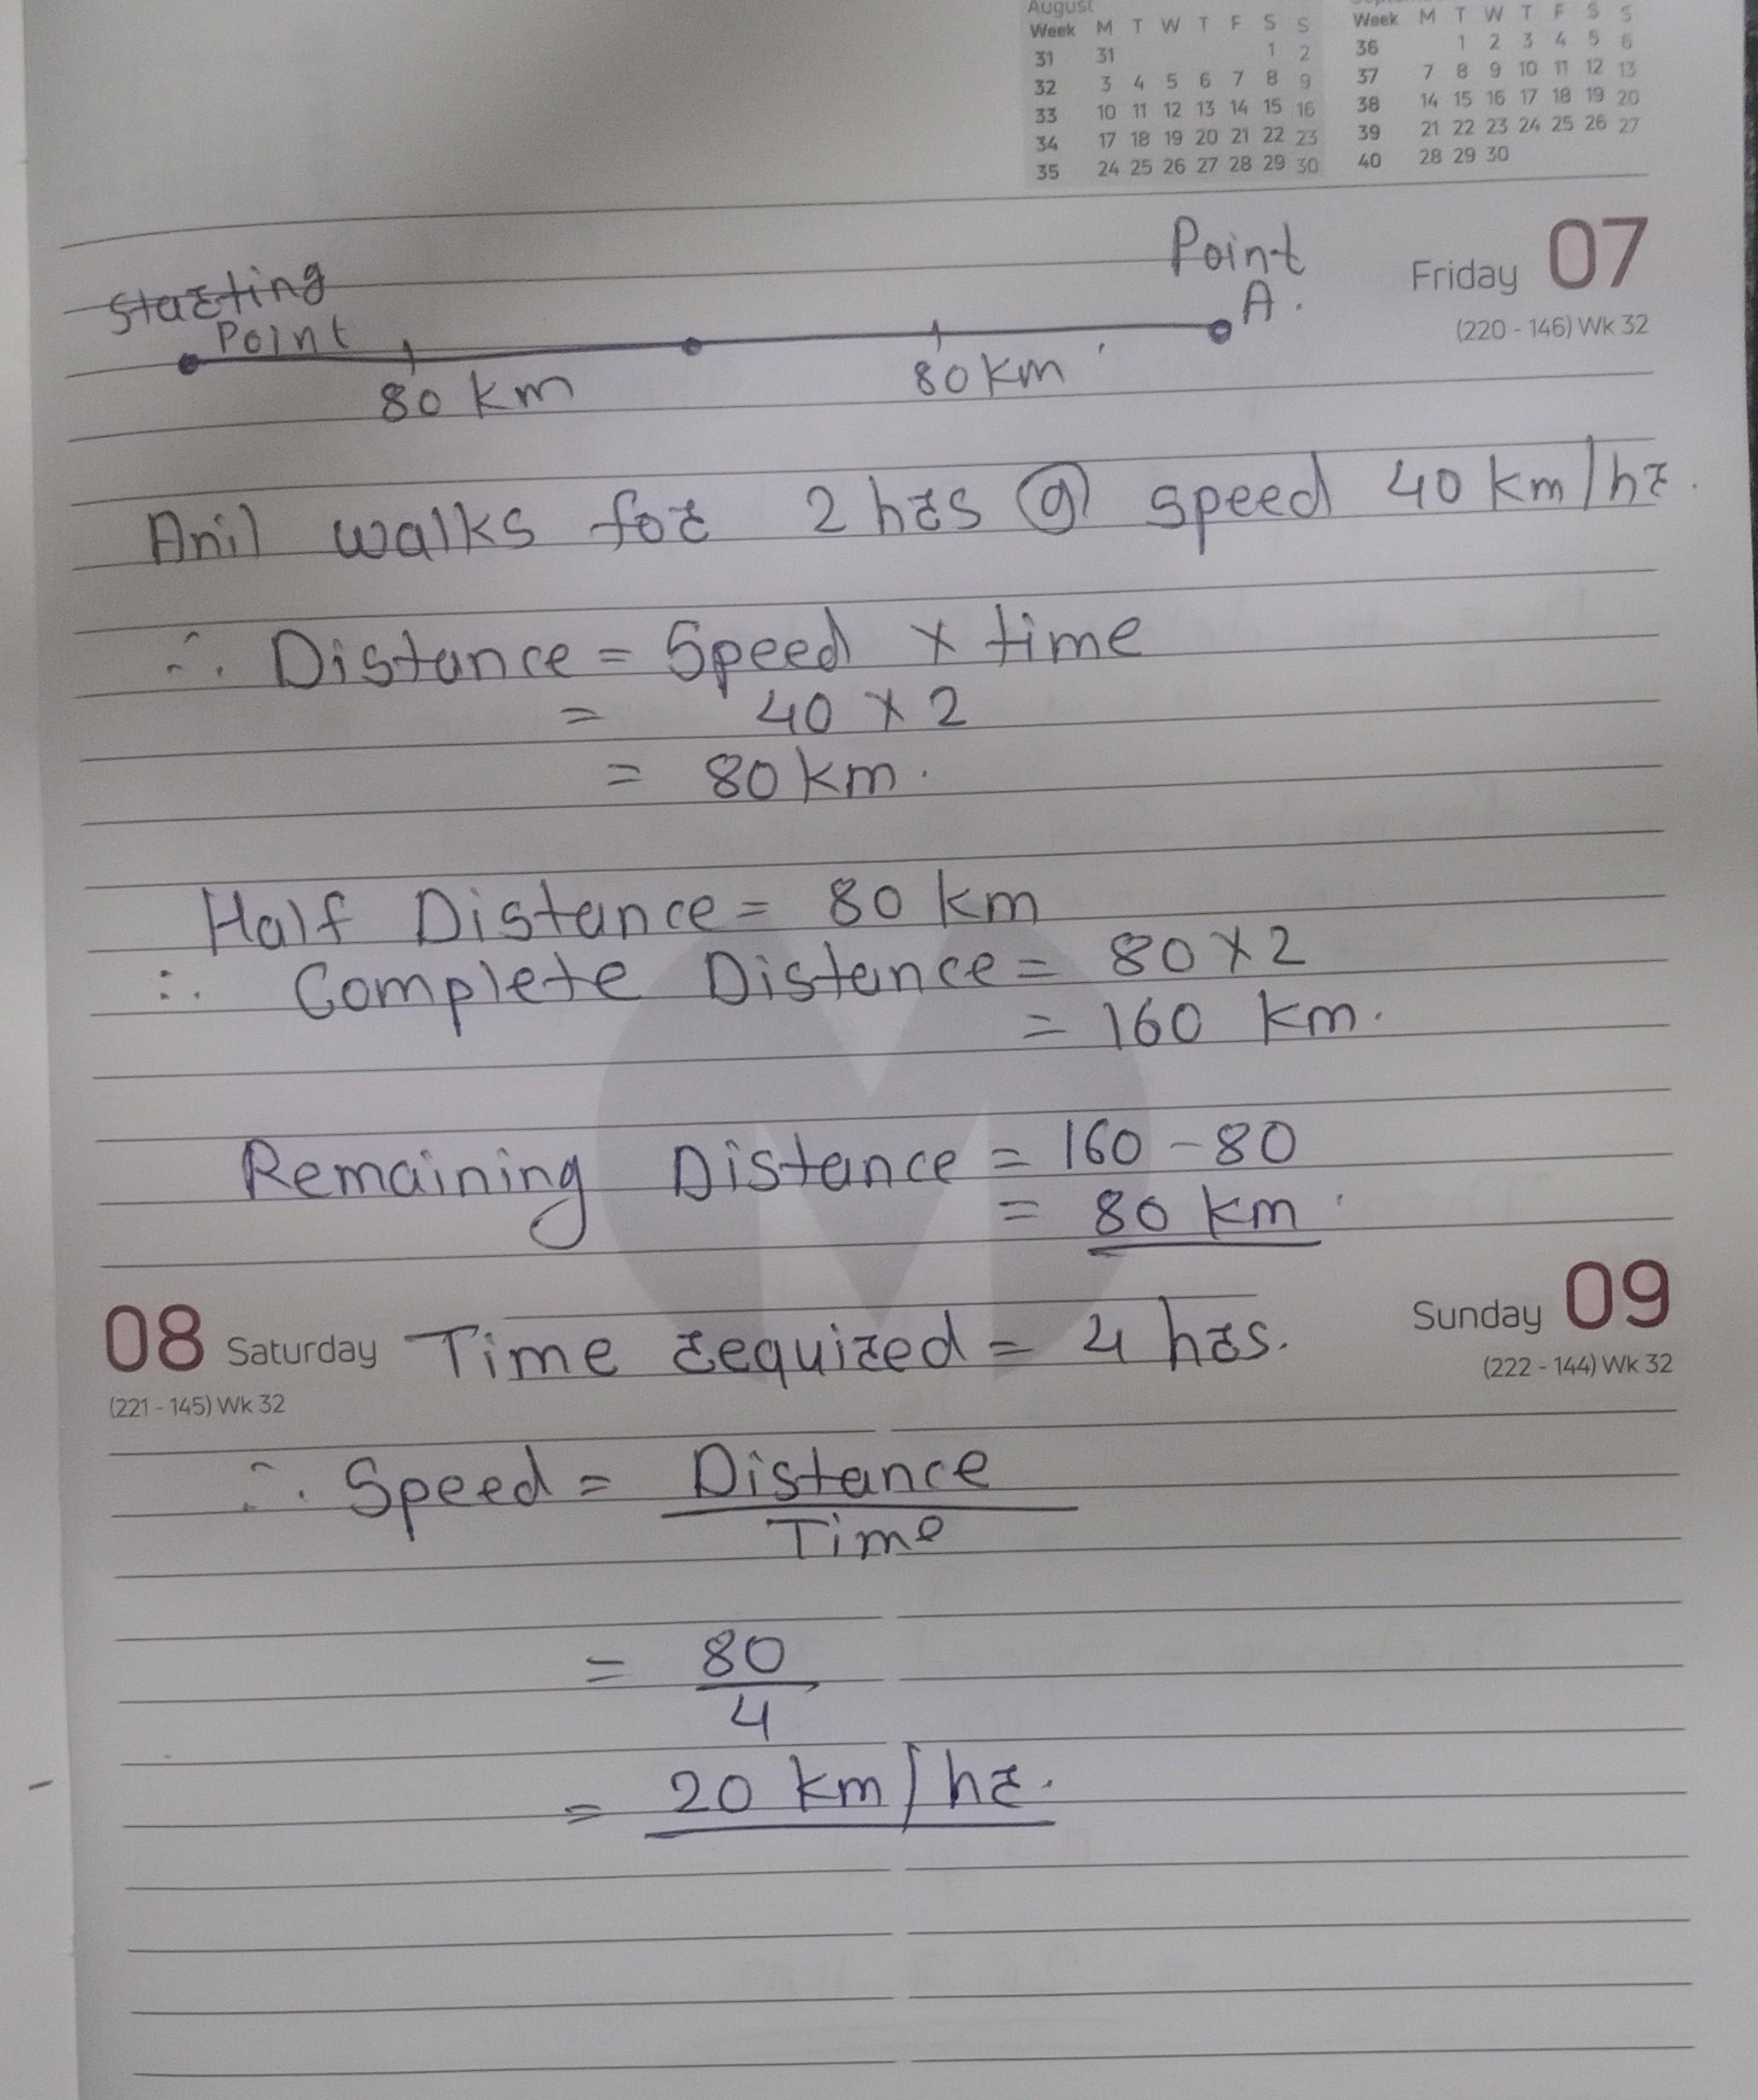 August
Week M T W T F S S
31 31 1 2
32 3 4 5 6 7 8 9
33 10 11 12 13 14 15 16
34 17 18 19 20 21 22 23
35 24 25 26 27 28 29 30
Week M T W T F S S
36 1 2 3 4 5 6
37 7 8 9 10 11 12 13
38 14 15 16 17 18 19 20
39 21 22 23 24 25 26 27
40 28 29 30
Friday 07
(220 - 146) Wk 32
Starting
Point
Point
A.
80 km
80 km
Anil walks for 2 hrs @ speed 40 km/hr.
∴ Distance = Speed × time
= 40 × 2
= 80 km.
Half Distance = 80 km
∴ Complete Distance = 80 × 2
= 160 km.
Remaining Distance = 160 - 80
= 80 km
08 Saturday
(221 - 145) Wk 32
Sunday 09
(222 - 144) Wk 32
Time required = 4 hrs.
∴ Speed = Distance
Time
= 80
4
= 20 km/hr.